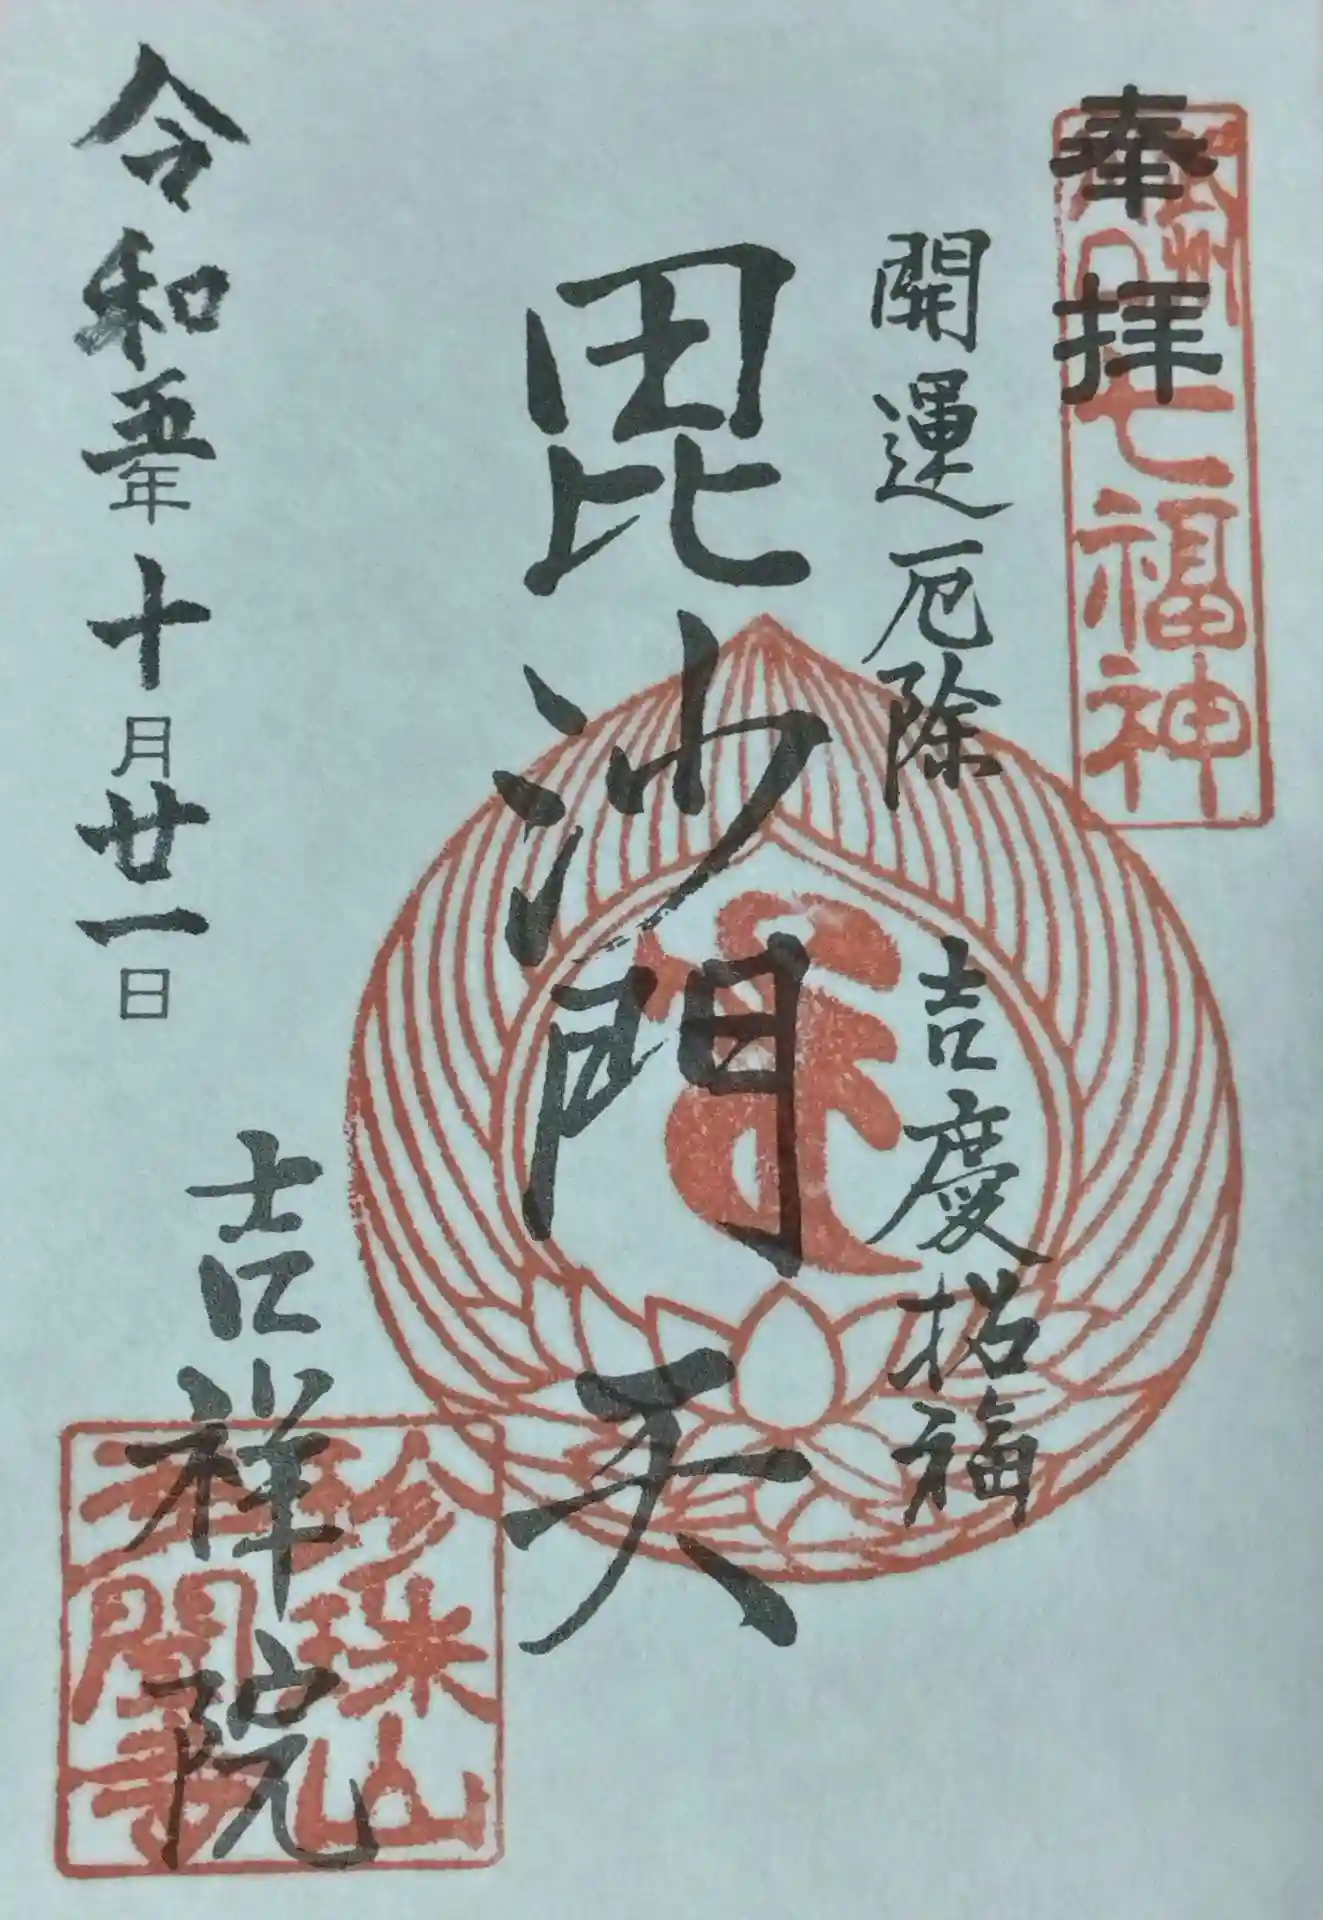 奉拝
武州川口七福神
開運厄除 吉慶招福
毘沙門天
吉祥院
令和五年十月廿一日
珍珠山
多聞寺